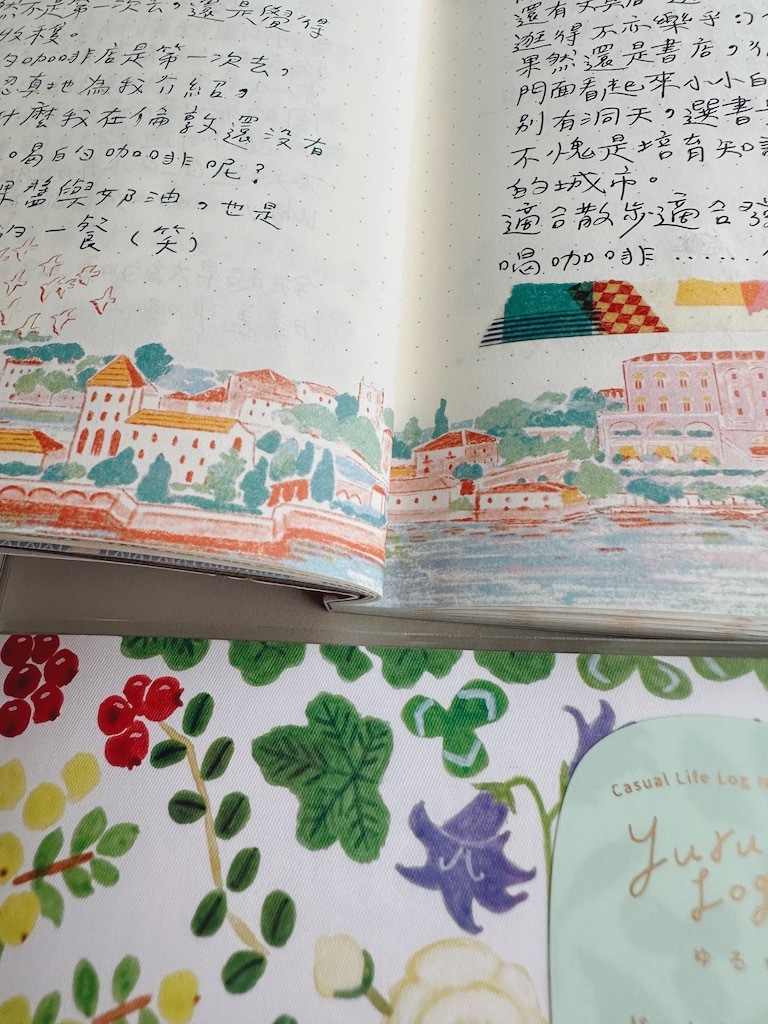 然不是第一次去，還是覺得
收穫。
的咖啡店是第一次去，
認真地為我介紹，
什麼我在倫敦還沒有
喝的咖啡呢？
果醬與奶油，也是
的一餐（笑）
還有
逛得不亦樂乎；
果然還是書店，
門面看起來小小的
別有洞天，選書
不愧是培育知
的城市。
適合散步適合
喝咖啡……
Casual Life Log
yuru
log
ゆる